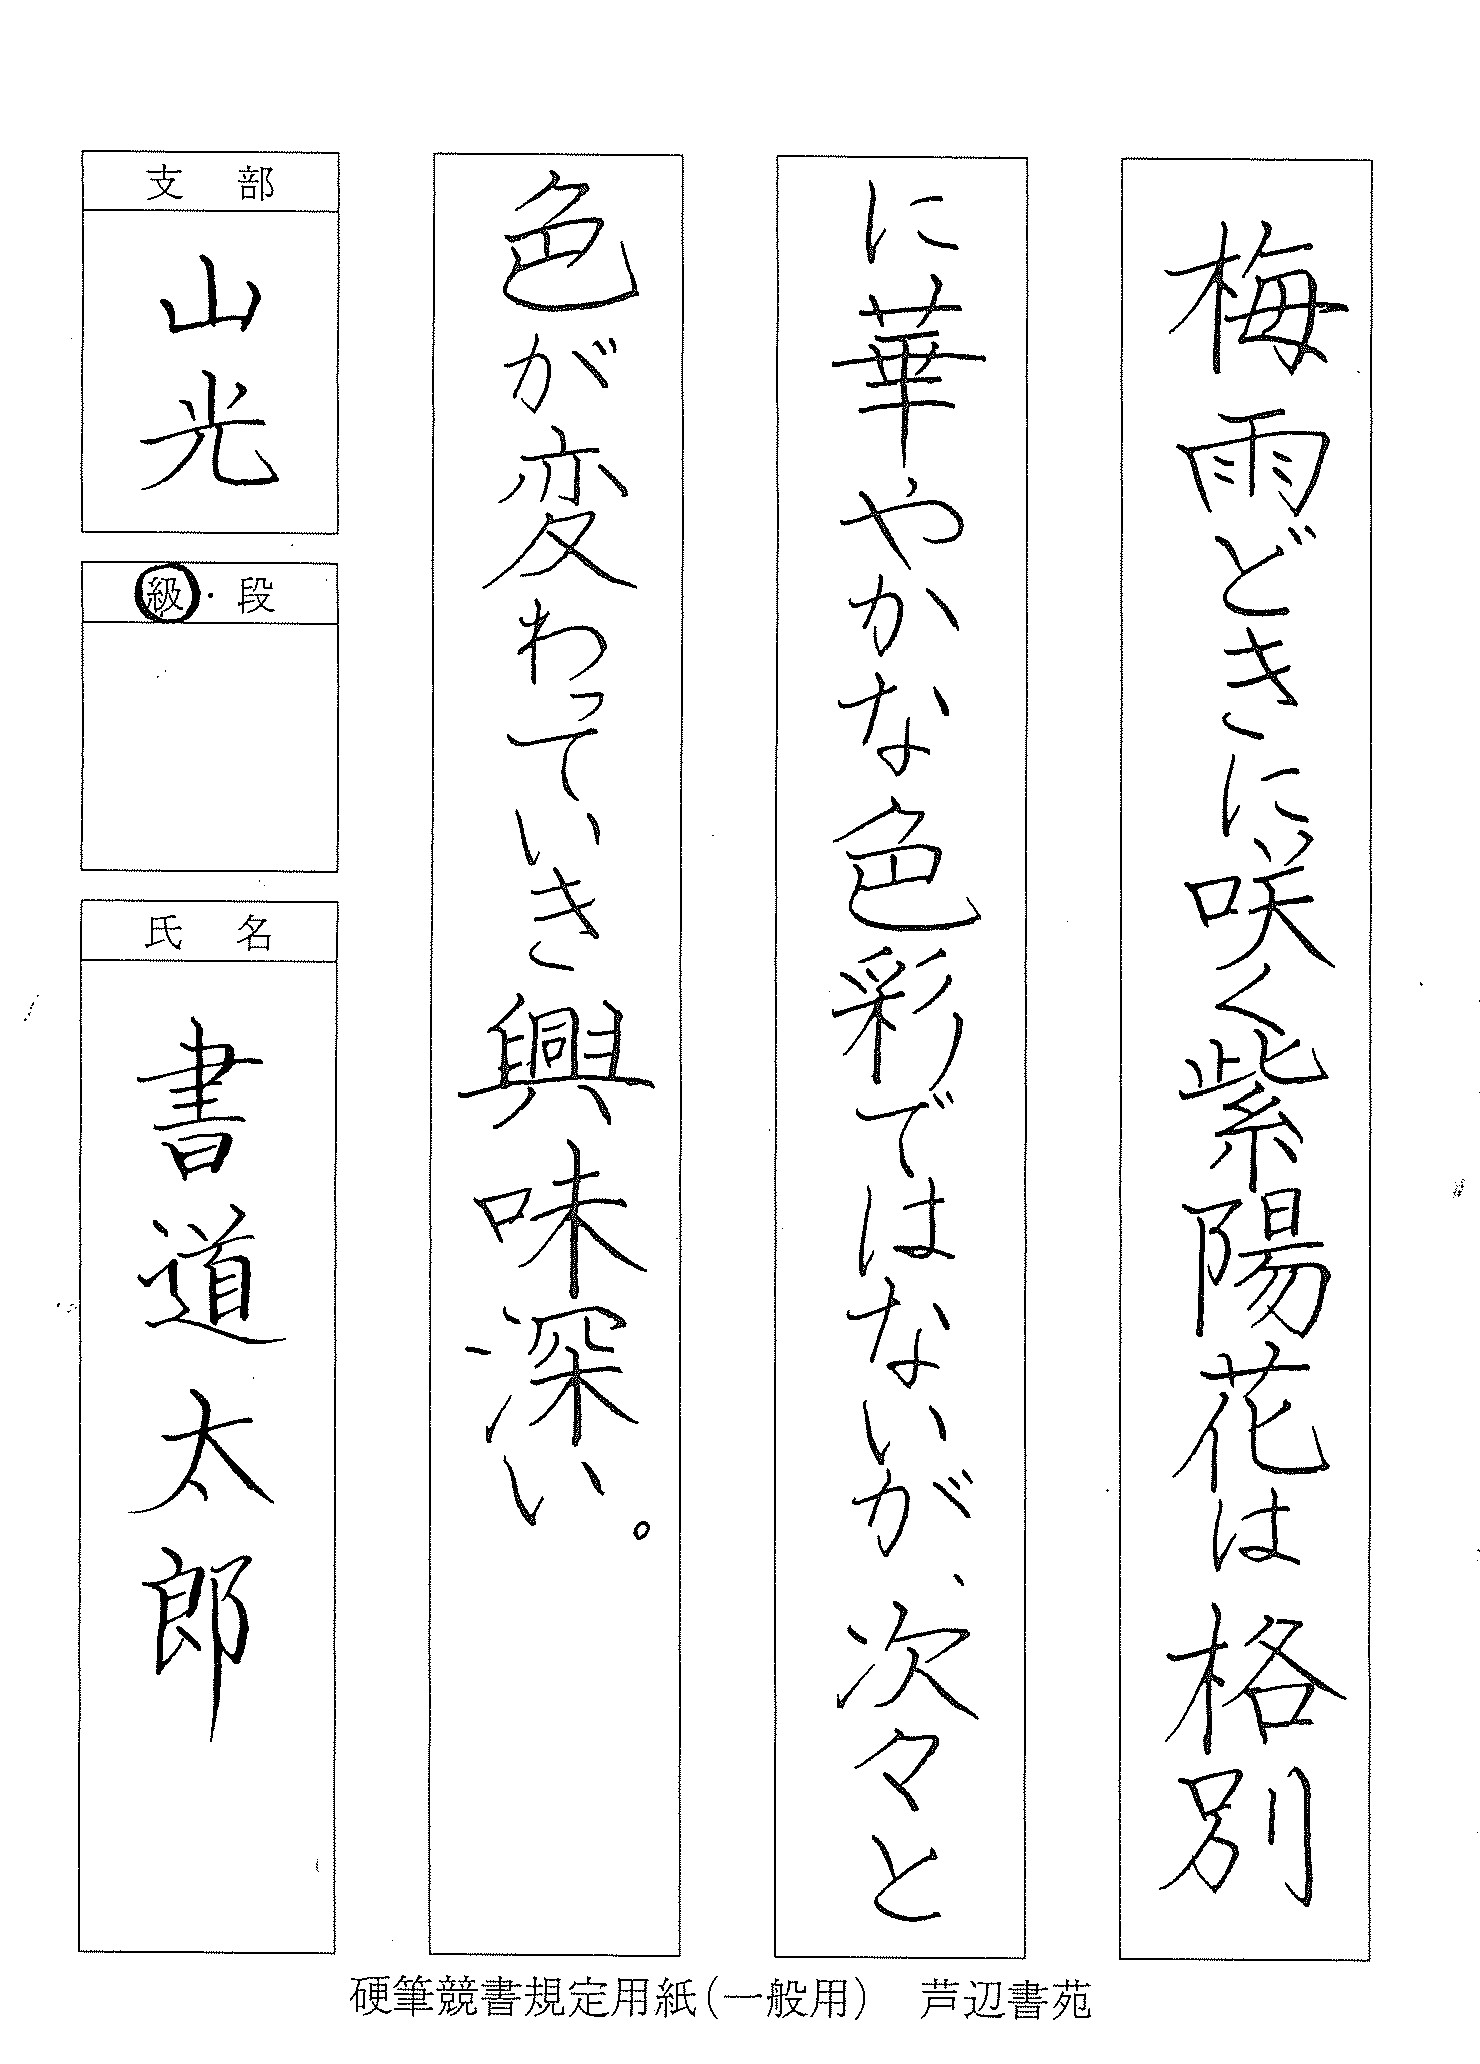 梅雨どきに咲く紫陽花は格別
に華やかな色彩ではないが、次々と
色が変わっていき興味深い。
支部
山光
級・段
氏名
書道太郎
硬筆競書規定用紙(一般用) 芦辺書苑